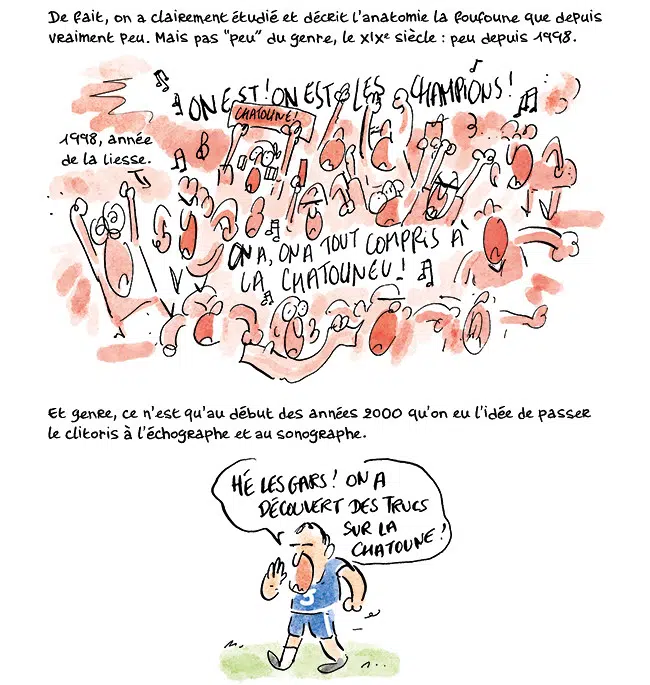 De fait, on a clairement étudié et décrit l'anatomie la foufoune que depuis
vraiment peu. Mais pas "peu" du genre, le XIXe siècle : peu depuis 1998.
ON EST ! ON EST LES CHAMPIONS !
CHATOUNE !
1998, année
de la liesse.
ON A, ON A TOUT COMPRIS À
LA CHATOUNEU !
Et genre, ce n'est qu'au début des années 2000 qu'on eu l'idée de passer
le clitoris à l'échographe et au sonographe.
HÉ LES GARS ! ON A
DÉCOUVERT DES TRUCS
SUR LA
CHATOUNE !
3